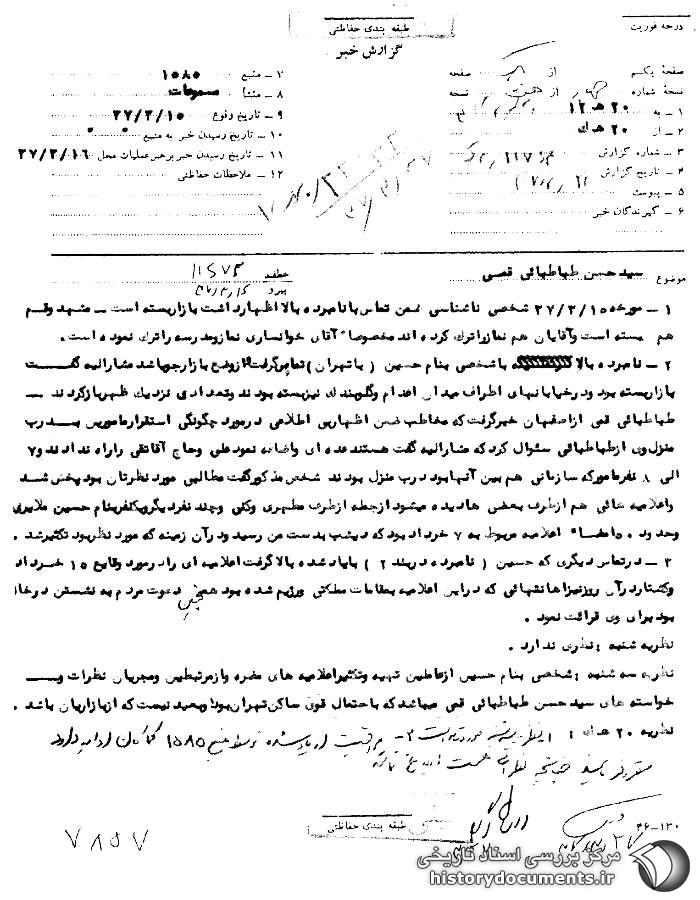 درجه فوریت
طبقه بندی حفاظتی
گزارش خبر
صفحه یکم از صفحه
نسخه شماره از نسخه
۱ ـ به ۲۰ هـ ۱۲
۲ ـ از ۲۰ هـ ک
۳ ـ شماره گزارش
۴ ـ تاریخ گزارش
۵ ـ پیوست
۶ ـ گیرندگان خبر
۷ ـ منبع ۱۵۸۵
۸ ـ منشأ مسموعات
۹ ـ تاریخ وقوع ۳۷/۳/۱۵
۱۰ ـ تاریخ رسیدن خبر به منبع
۱۱ ـ تاریخ رسیدن خبر برهبر عملیات محل ۳۷/۳/۱۶
۱۲ ـ ملاحظات حفاظتی
موضوع سید حسن طباطبائی قمی
عطف
پیرو
۱ ـ مورخه ۳۷/۳/۱۵ شخصی ناشناسی ضمن تماس با نامبرده بالا اظهارداشت بازار بسته است ـ مشهد وقم
هم بسته است وآقایان هم نماز را ترک کرده اند مخصوصا" آقای خوانساری نماز ومدرسه راترک نموده است.
۲ ـ نامبرده بالا که با شخصی بنام حسین (با تهران) تماس گرفت از وضع بازار جویا شد مشارالیه گفت
بازار بسته بود و درخیابانهای اطراف میدان اعدام وگلوبندک نیز بسته بودند وتعدادی نزدیک ظهر باز کردند ـ
طباطبائی قمی از اصفهان خبر گرفت که مخاطب ضمن اظهار بی اطلاعی درمورد چگونگی استقرار مامورین بدرب
منزل وی از طباطبائی سئوال کرد که مشارالیه گفت هستند عده ای واضافه نمود علی وحاج آقا تقی را راه ندادند و ۷
الی ۸ نفر مامور که سازمانی هم بین آنها بود درب منزل بودند شخص مذکور گفت مطالبی مورد نظرتان بود پخش شد
واعلامیه هائی هم از طرف بعضی ها دیده میشود از جمله از طرف مطهری وکنی وچند نفر دیگر ویکنفر بنام حسین ملایری
وحدود ۵۰ امضاء اعلامیه مربوط به ۷ خرداد بود که دیشب بدست من رسید ودر آن زمینه که مورد نظر بود تکثیر شد.
۳ ـ در تماس دیگری که حسین (نامبرده دربند ۲) با یاد شده بالا گرفت اعلامیه ای را در مورد وقایع ۱۵ خرداد
وکشتار در آن روز نیز اهانتهائی که در این اعلامیه بمقامات مملکتی ورژیم شده بود همچنین دعوت مردم به نشستن در خانه
بود برای وی قرائت نمود.
نظریه شنبه : نظری ندارد.
نظریه سه شنبه : شخصی بنام حسین از عاملین تهیه وتکثیر اعلامیه های مضره واز مرتبطین ومجریان نظرات و ـ
خواسته های سید حسن طباطبائی قمی میباشد که با حتمال قوی ساکن تهران بوده وبعید نیست که از بازاریان باشد.
نظریه ۲۰ هـ ک :
طبقه بندی حفاظتی
۳۶-۱۳۰
۷۸۵۷
مرکز بررسی اسناد تاریخی
historydocuments.ir